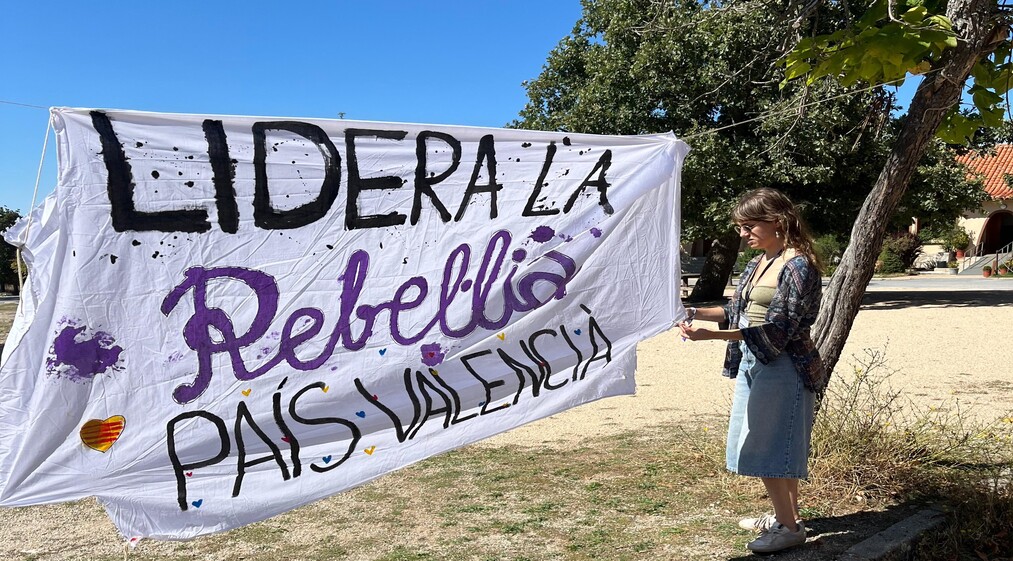 LIDERA L'A
Rebel·lia
PAÍS VALENCIÀ